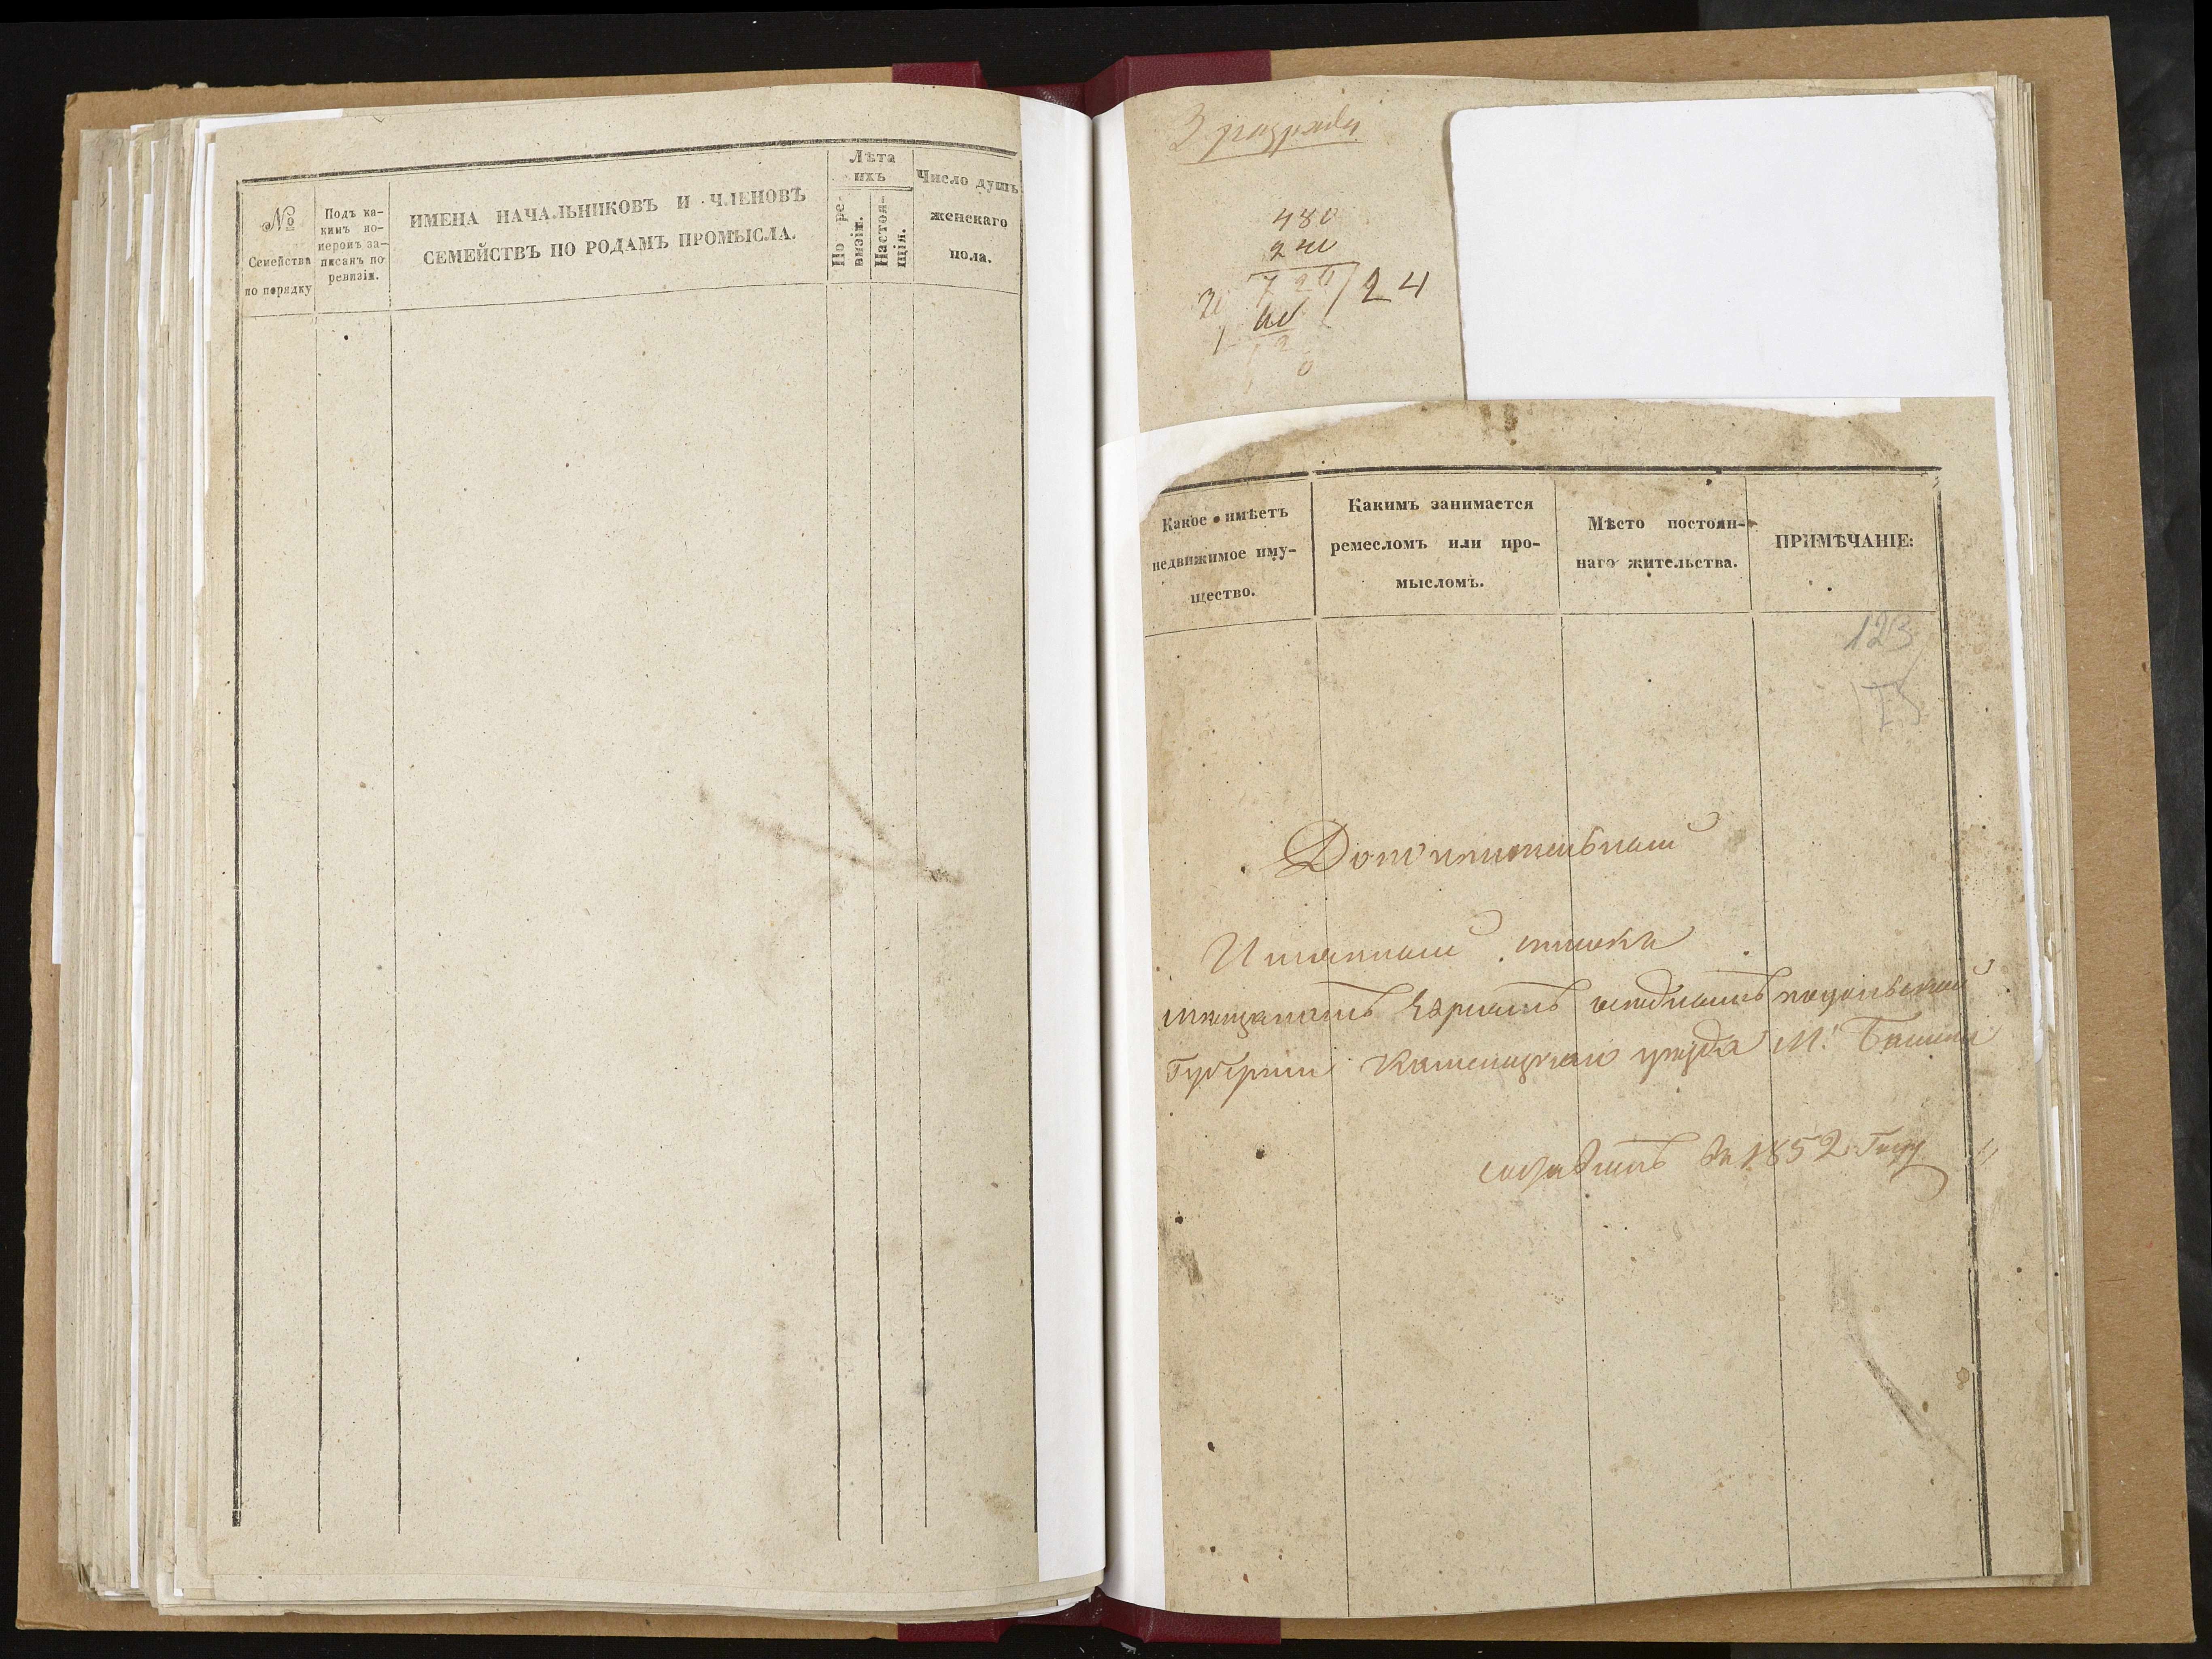 №
Семейства
по порядку
Подъ ка-
кимъ но-
меромъ за-
писанъ по
ревизіи.
ИМЕНА НАЧАЛЬНИКОВЪ И ЧЛЕНОВЪ
СЕМЕЙСТВЪ ПО РОДАМЪ ПРОМЫСЛА.
Лѣта
ихъ
По ре-
визіи.
Настоя-
щія.
Число душъ
женскаго
пола.
3 разряда
480
240
720 24
Какое имѣетъ
недвижимое иму-
щество.
Какимъ занимается
ремесломъ или про-
мысломъ.
Мѣсто постоян-
наго жительства.
ПРИМѢЧАНІЕ:
123
Дополнительный
Именный списокъ
мещанамъ Евреямъ подольской
Губерніи Каменецкаго уезда М.
на 1852 Годъ